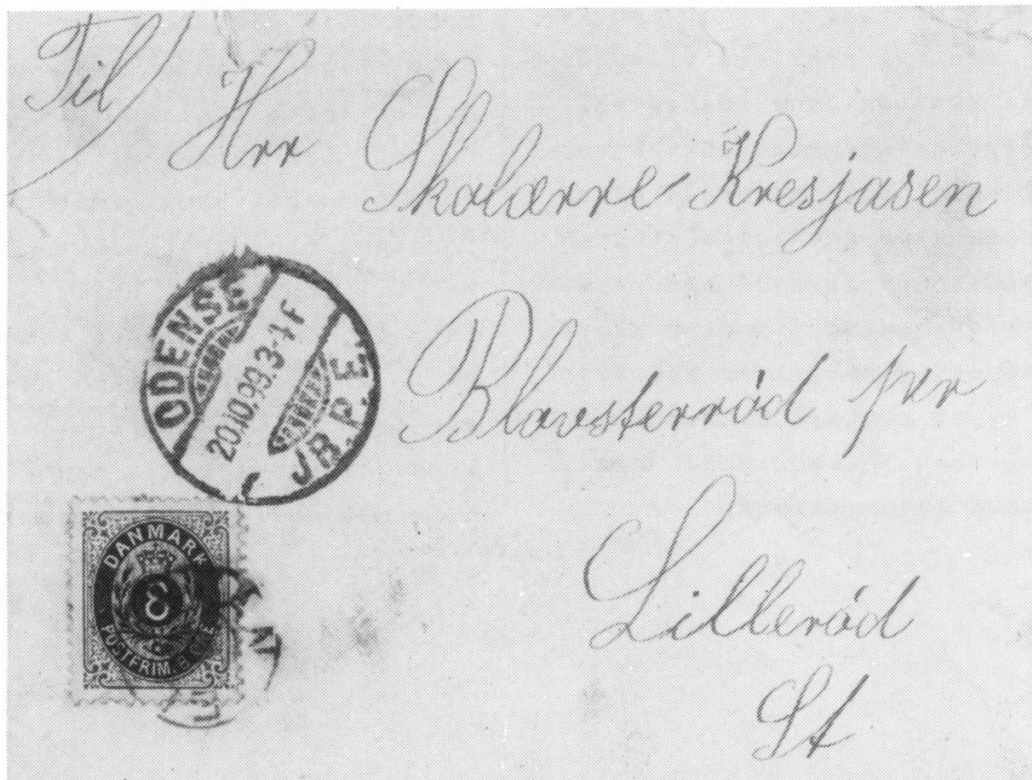 Til
Herr Skolærre Kresjasen
Blovsterröd per
Lilleröd
St
ODENSE
20.10.99. 3-4 E
JB.P.E.
DANMARK
POSTFRIM. 8 ØRE